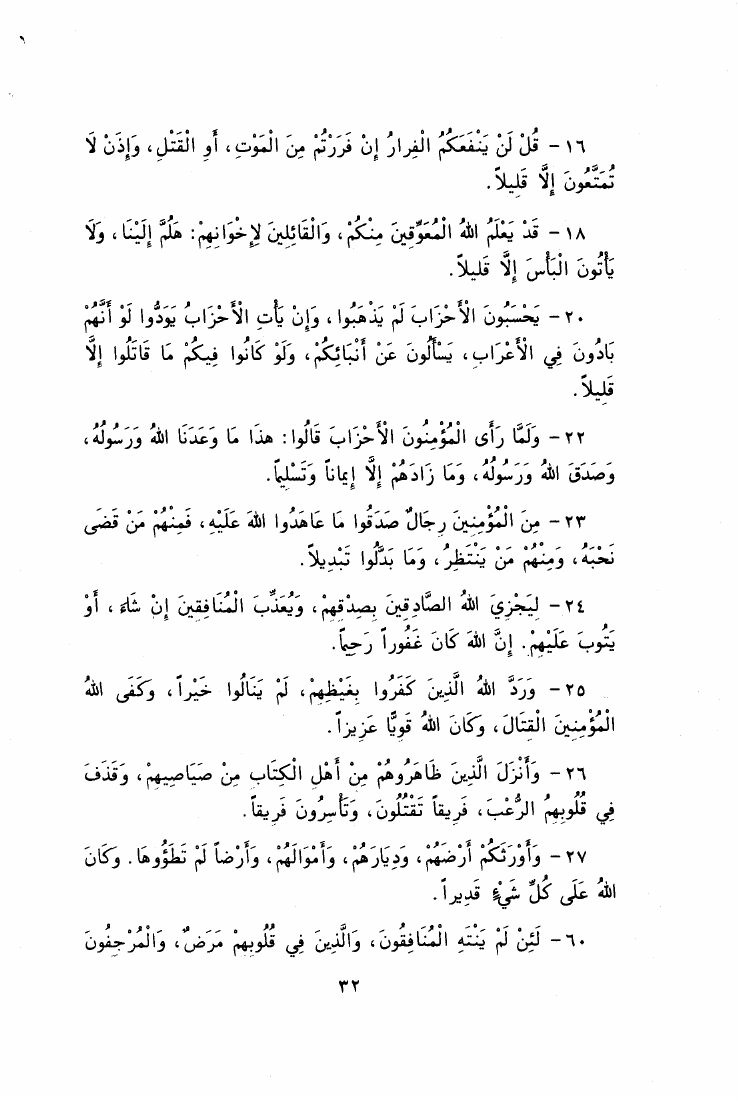 ١٦ – قُلْ لَنْ يَنْفَعَكُمُ الْفِرارُ إِنْ فَرَرْتُمْ مِنَ الْمَوْتِ، أَوِ الْقَتْلِ، وَإِذَنْ لَا
تُمَتَّعُونَ إِلَّا قَلِيلاً.
١٨ – قَدْ يَعْلَمُ اللهُ الْمُعَوِّقِينَ مِنْكُمْ، وَالْقَائِلِينَ لِإِخْوَانِهِمْ: هَلُمَّ إِلَيْنَا، وَلَا
يَأْتُونَ الْبَأْسَ إِلَّا قَلِيلاً.
٢٠ – يَحْسَبُونَ الْأَحْزَابَ لَمْ يَذْهَبُوا، وَإِنْ يَأْتِ الْأَحْزَابُ يَوَدُّوا لَوْ أَنَّهُمْ
بَادُونَ فِي الْأَعْرَابِ، يَسْأَلُونَ عَنْ أَنْبَائِكُمْ، وَلَوْ كَانُوا فِيكُمْ مَا قَاتَلُوا إِلَّا
قَلِيلاً.
٢٢ – وَلَمَّا رَأَى الْمُؤْمِنُونَ الْأَحْزَابَ قَالُوا: هذَا مَا وَعَدَنَا اللهُ وَرَسُولُهُ،
وَصَدَقَ اللهُ وَرَسُولُهُ، وَمَا زَادَهُمْ إِلَّا إِيمَاناً وَتَسْلِيماً.
٢٣ – مِنَ الْمُؤْمِنِينَ رِجَالٌ صَدَقُوا مَا عَاهَدُوا اللهَ عَلَيْهِ، فَمِنْهُمْ مَنْ قَضَى
نَحْبَهُ، وَمِنْهُمْ مَنْ يَنْتَظِرُ، وَمَا بَدَّلُوا تَبْدِيلاً.
٢٤ – لِيَجْزِيَ اللهُ الصَّادِقِينَ بِصِدْقِهِمْ، وَيُعَذِّبَ الْمُنَافِقِينَ إِنْ شَاءَ، أَوْ
يَتُوبَ عَلَيْهِمْ. إِنَّ اللهَ كَانَ غَفُوراً رَحِيماً.
٢٥ – وَرَدَّ اللهُ الَّذِينَ كَفَرُوا بِغَيْظِهِمْ، لَمْ يَنَالُوا خَيْراً، وَكَفَى اللهُ
الْمُؤْمِنِينَ الْقِتَالَ، وَكَانَ اللهُ قَوِيًّا عَزِيزاً.
٢٦ – وَأَنْزَلَ الَّذِينَ ظَاهَرُوهُمْ مِنْ أَهْلِ الْكِتَابِ مِنْ صَيَاصِيهِمْ، وَقَذَفَ
فِي قُلُوبِهِمُ الرُّعْبَ، فَرِيقاً تَقْتُلُونَ، وَتَأْسِرُونَ فَرِيقاً.
٢٧ – وَأَوْرَثَكُمْ أَرْضَهُمْ، وَدِيَارَهُمْ، وَأَمْوَالَهُمْ، وَأَرْضاً لَمْ تَطَؤُوهَا. وَكَانَ
اللهُ عَلَى كُلِّ شَيْءٍ قَدِيراً.
٦٠ – لَئِنْ لَمْ يَنْتَهِ الْمُنَافِقُونَ، وَالَّذِينَ فِي قُلُوبِهِمْ مَرَضٌ، وَالْمُرْجِفُونَ
٣٢